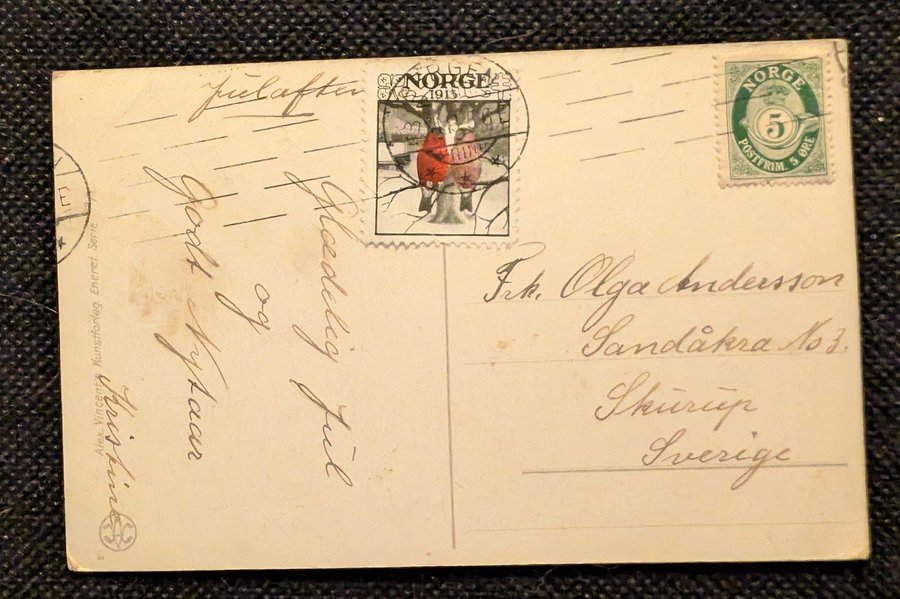 Julaften
NORGE
1913
NORGE
5
POSTFRIM. 5 ØRE
Glædelig Jul
og
Godt Nytaar
Kristine
Frk. Olga Andersson
Sandåkra No 3.
Skurup
Sverige
Alex. Vincents Kunstforlag, Eneret Serie